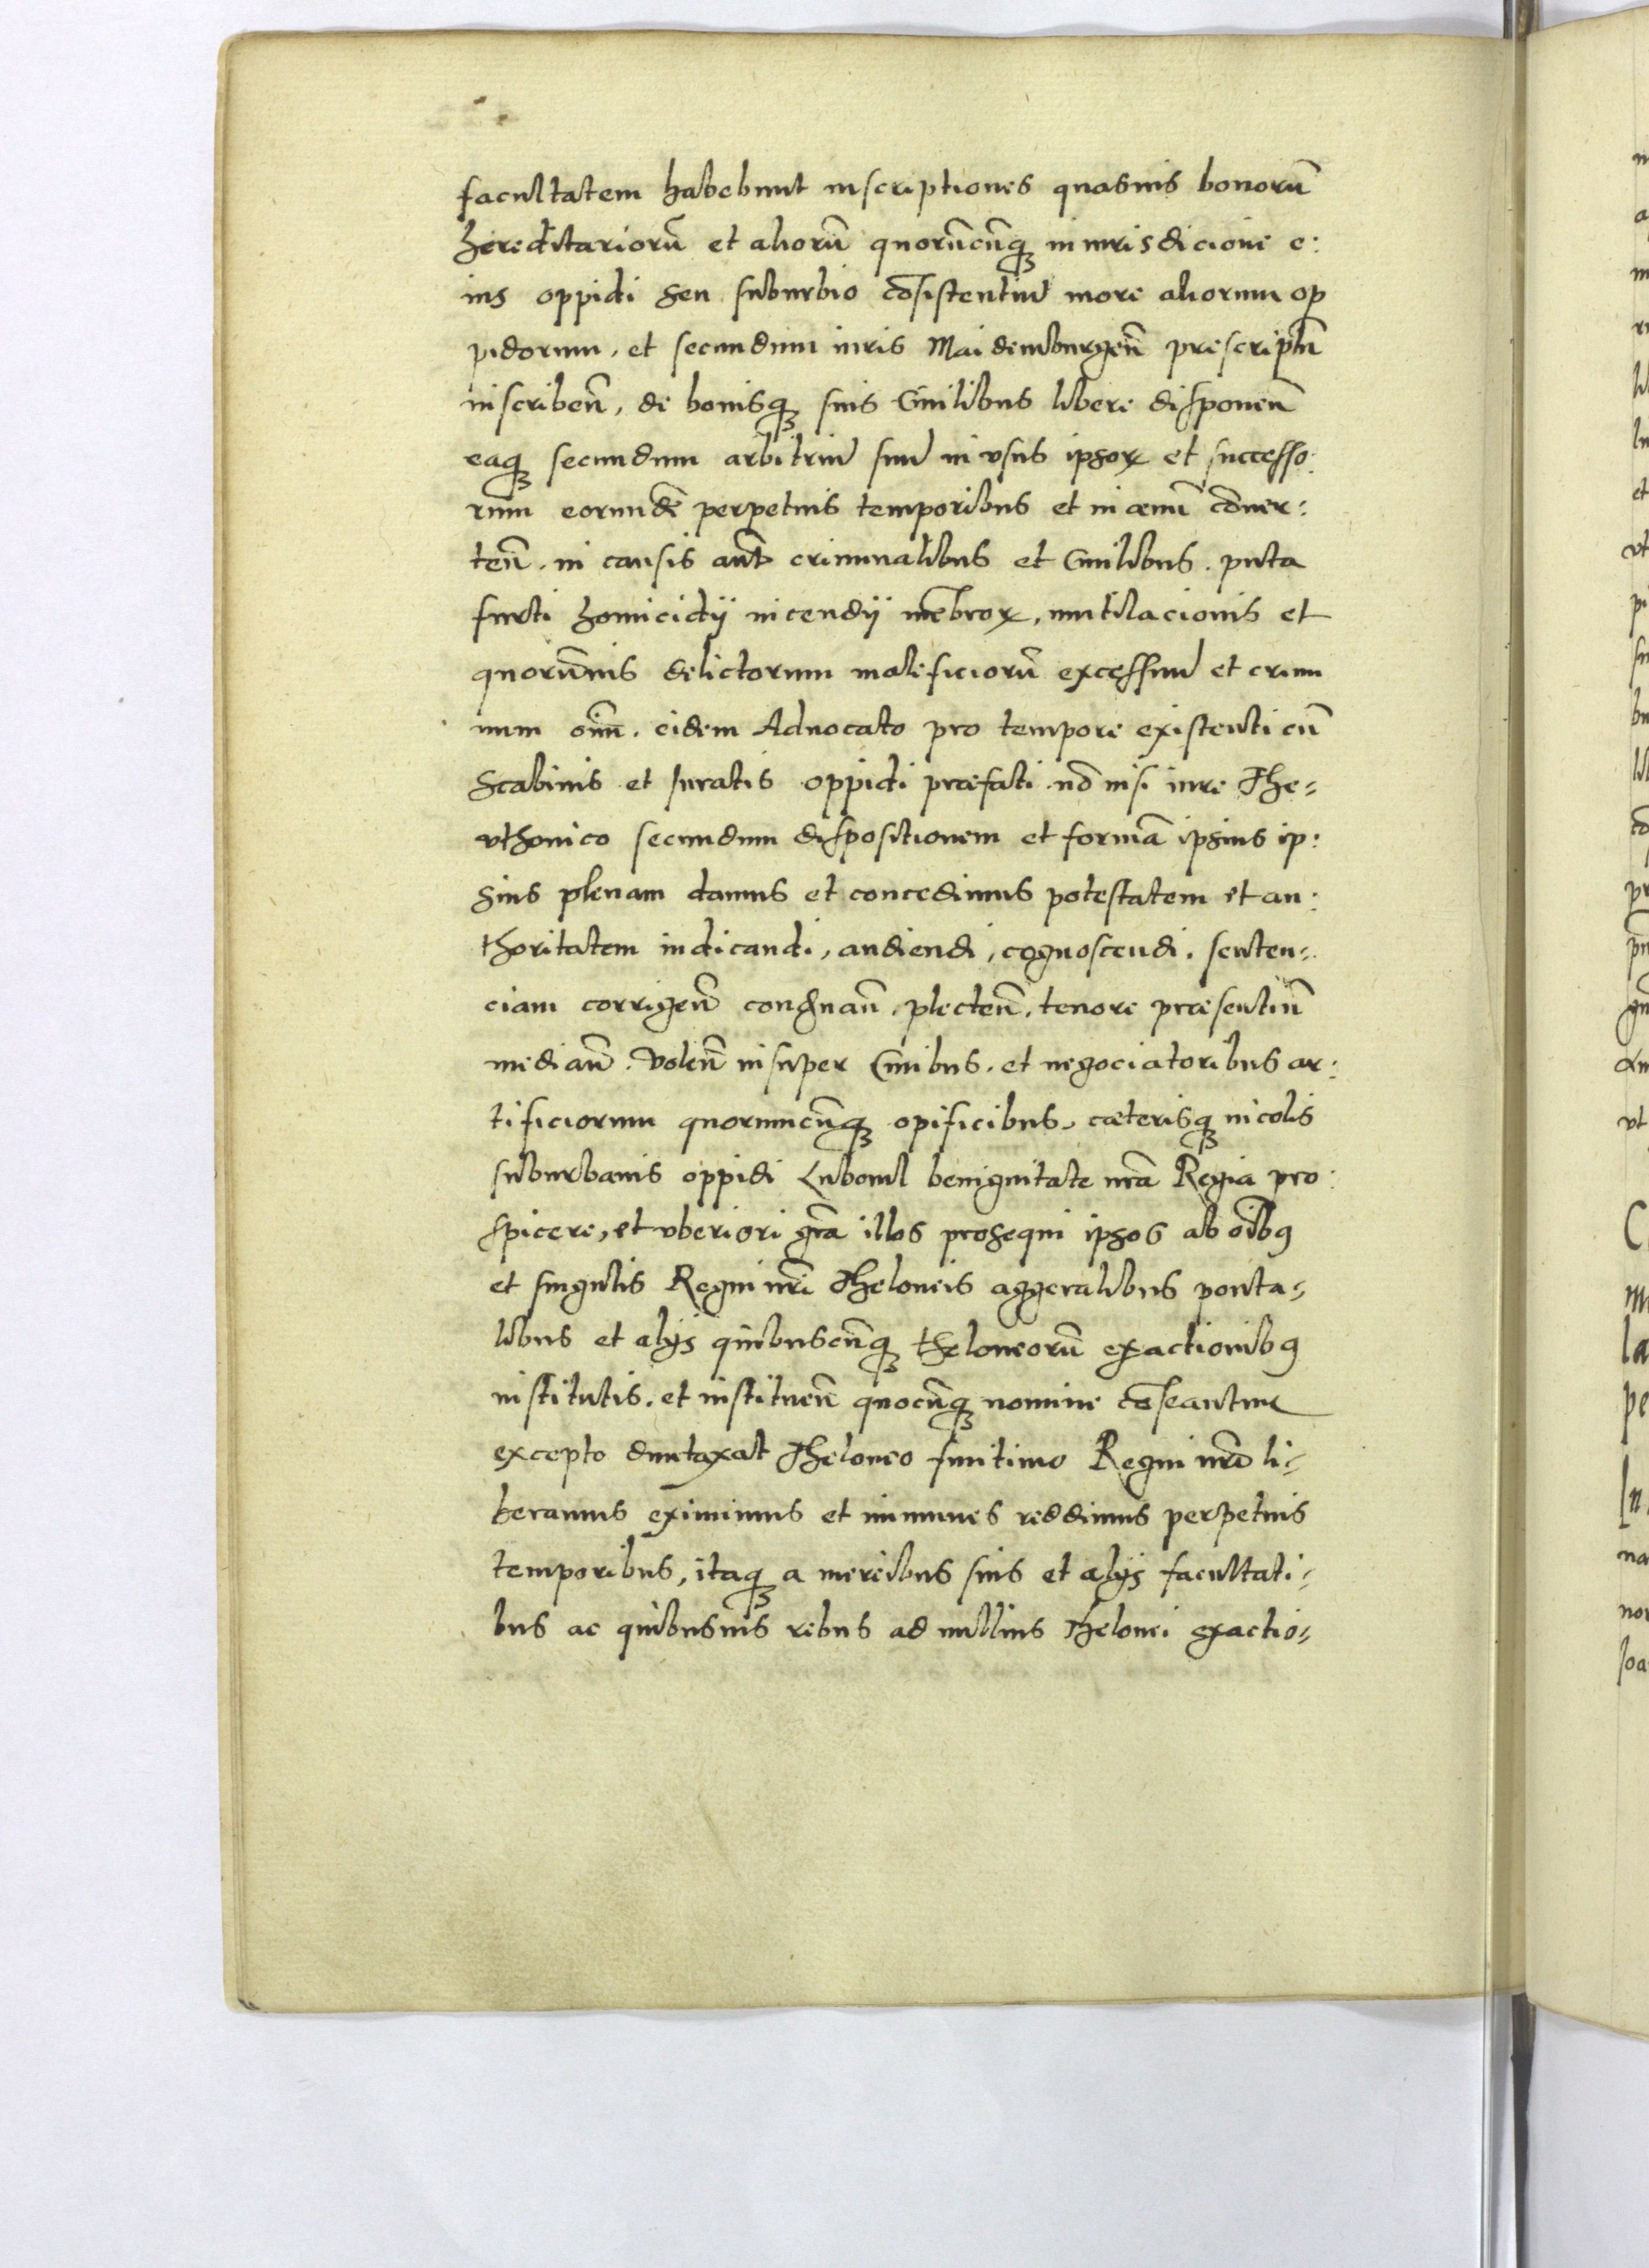 facultatem habebunt inscriptiones quasuis bonorū
hereditariorū et aliorū quorūcūqꝫ in iurisdicione e:
ius oppidi seu suburbio cōsistentiū more aliorum op
pidorum, et secundum iuris Maidemburgeñ prescriptū
inscribeñ, de bonisqꝫ suis Ciuilibus libere disponeñ
eaqꝫ secundum arbitriū suū in vsus ipsoꝝ et successo:
rum eorundē perpetuis temporibus et in æuū cōuer:
teñ. in causis aūt criminalibus et Ciuilibus. puta
furti homicidij incendij mēbroꝝ, mutilacionis et
quorūuis delictorum maleficiorū excessuū et crimi
num oīm. eidem Aduocato pro tempore existenti cū
Scabinis et Iuratis oppidi præfati nō nisi iure The⸗
vthonico secundum dispositionem et formā ipsius ip:
sius plenam damus et concedimus potestatem et au:
thoritatem iudicandi, audiendi, cognoscendi. senten⸗
ciam corrigeñ condnañ. plecteñ. tenore præsentiū
mediañ. Voleñ insuper Ciuibus. et negociatoribus ar:
tificiorum quorumcūqꝫ opificibus, cæterisqꝫ incolis
suburbanis oppidi Luboml benignitate nrā Regia pro:
spicere, et vberiori grā illos prosequi ipsos ab oībꝯ
et singulis Regni nrī Theloneis aggeralibus ponta⸗
libus et alijs quibuscūqꝫ theloneorū exactionibꝯ
institutis. et institueñ quocūqꝫ nomine cēseantur
excepto duntaxat Theloneo finitimo Regni nrī li⸗
beramus eximimus et immunes reddimus perpetuis
temporibus, itaqꝫ a mercibus suis et alijs facultati⸗
bus ac quibusuis rebus ad nullius Thelonei exactio⸗